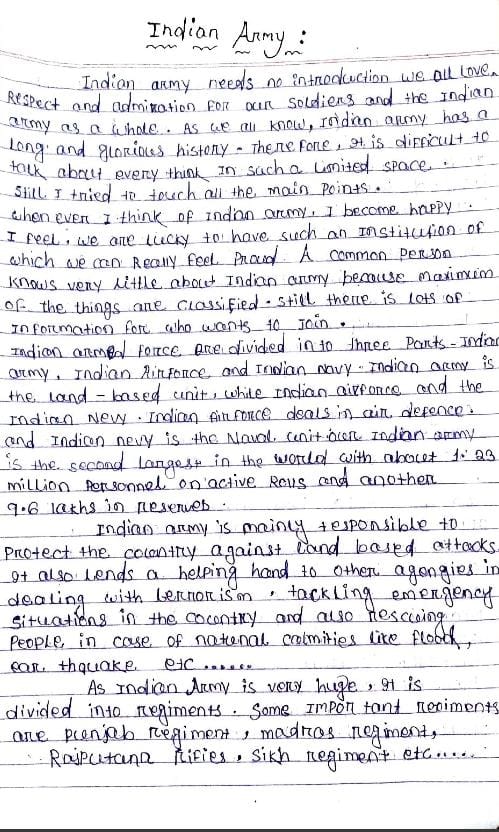 Indian Army :
Indian army needs no introduction we all love,
Respect and admiration for our soldiers and the Indian
army as a whole. As we all know, indian army has a
long and glorious history - Therefore, It is difficult to
talk about every think in such a limited space.
Still I tried to touch all the main points.
when ever I think of Indian army, I become happy.
I feel, we are lucky to have such an Institution of
which we can Really feel Proud. A common person
knows very little about Indian army because maximum
of the things are classified. still there is lots of
information for who wants to Join.
Indian armed force are divided in to three Parts - Indian
army, Indian Airforce and Indian Navy - Indian army is
the land - based unit, while Indian airforce and the
Indian New. Indian Air force deals in air defence.
and Indian nevy is the Naval unit our Indian army
is the second largest in the world with about 1.23
million Personnel on active Rous and another
9.6 lakhs in reserves.
Indian army is mainly tesponsible to
Protect the country against land based attacks
It also lends a helping hand to other agengies in
dealing with terrorism, tackling emergency
situations in the country and also rescuing
People, in case of natural calmities like flood,
ear thquake etc ......
As Indian Army is very huge, It is
divided into regiments. Some Impor tant regiments
are punjab regiment, madras regiment,
Rajputana Rifies, Sikh regiment etc.....